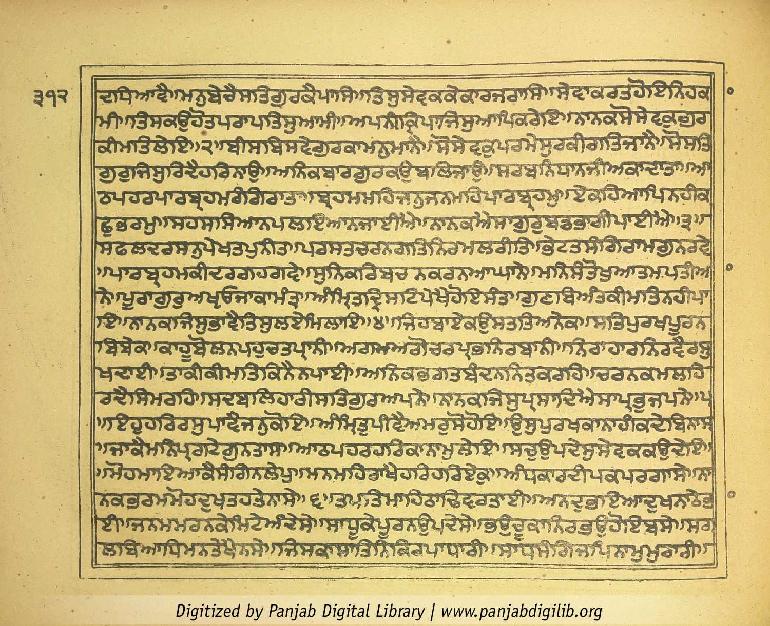 ੩੧੨
ਧਿਆਵੈ॥ਮਨੁਬੇਚੈਸਤਿਗੁਰਕੈਪਾਸਿ॥ਤਿਸੁਸੇਵਕਕੇਕਾਰਜਰਾਸਿ॥ਸੇਵਾਕਰਤਹੋਇਨਿਹਕਾ
ਮੀ॥ਤਿਸਕਉਹੋਤਪਰਾਪਤਿਸੁਆਮੀ॥ਅਪਨੀਕ੍ਰਿਪਾਜਿਸੁਆਪਿਕਰੇਇ॥ਨਾਨਕਸੋਸੇਵਕੁਗੁਰ
ਕੀਮਤਿਲੇਇ॥੨॥ਬੀਸਬਿਸਵੇਗੁਰਕਾਮਨੁਮਾਨੈ॥ਸੋਸੇਵਕੁਪਰਮੇਸੁਰਕੀਗਤਿਜਾਨੈ॥ਸੋਸਤਿ
ਗੁਰੁਜਿਸੁਰਿਦੈਹਰਿਨਾਉ॥ਅਨਿਕਬਾਰਗੁਰਕਉਬਲਿਜਾਉ॥ਸਰਬਨਿਧਾਨਜੀਅਕਾਦਾਤਾ॥ਆ
ਠਪਹਰਪਾਰਬ੍ਰਹਮਰੰਗਿਰਾਤਾ॥ਬ੍ਰਹਮਮਹਿਜਨੁਜਨਮਹਿਪਾਰਬ੍ਰਹਮੁ॥ਏਕਹਿਆਪਿਨਹੀਕ
ਛੁਭਰਮੁ॥ਸਹਸਸਿਆਨਪਲਇਆਨਜਾਈਐ॥ਨਾਨਕਐਸਾਗੁਰੁਬਡਭਾਗੀਪਾਈਐ॥੩॥
ਸਫਲਦਰਸਨੁਪੇਖਤਪੁਨੀਤ॥ਪਰਸਤਚਰਨਗਤਿਨਿਰਮਲਰੀਤਿ॥ਭੇਟਤਸੰਗਿਰਾਮਗੁਨਰਵੇ
॥ਪਾਰਬ੍ਰਹਮਕੀਦਰਗਹਗਵੇ॥ਸੁਨਿਕਰਿਬਚਨਕਰਨਆਘਾਨੇ॥ਮਨਿਸੰਤੋਖੁਆਤਮਪਤੀਆ
ਨੇ॥ਪੂਰਾਗੁਰੁਅਖ੍ਯਓਜਾਕਾਮੰਤ੍ਰ॥ਅੰਮ੍ਰਿਤਦ੍ਰਿਸਟਿਪੇਖੈਹੋਇਸੰਤ॥ਗੁਣਬਿਅੰਤਕੀਮਤਿਨਹੀਪਾ
ਇ॥ਨਾਨਕਜਿਸੁਭਾਵੈਤਿਸੁਲਏਮਿਲਾਇ॥੪॥ਜਿਹਬਾਏਕਉਸਤਤਿਅਨੇਕ॥ਸਤਿਪੁਰਖਪੂਰਨ
ਬਿਬੇਕ॥ਕਾਹੂਬੋਲਨਪਹੁਚਤਪ੍ਰਾਨੀ॥ਅਗਮਅਗੋਚਰਪ੍ਰਭਨਿਰਬਾਨੀ॥ਨਿਰਾਹਾਰਨਿਰਵੈਰਸੁ
ਖਦਾਈ॥ਤਾਕੀਕੀਮਤਿਕਿਨੈਨਪਾਈ॥ਅਨਿਕਭਗਤਬੰਦਨਨਿਤਕਰਹਿ॥ਚਰਨਕਮਲਹਿ
ਰਦੈਸਿਮਰਹਿ॥ਸਦਬਲਿਹਾਰੀਸਤਿਗੁਰਅਪਨੇ॥ਨਾਨਕਜਿਸੁਪ੍ਰਸਾਦਿਐਸਾਪ੍ਰਭੁਜਪਨੇ॥੫
॥ਇਹੁਹਰਿਰਸੁਪਾਵੈਜਨੁਕੋਇ॥ਅੰਮ੍ਰਿਤੁਪੀਵੈਅਮਰੁਸੋਹੋਇ॥ਉਸੁਪੁਰਖਕਾਨਾਹੀਕਦੇਬਿਨਾਸ
॥ਜਾਕੈਮਨਿਪ੍ਰਗਟੇਗੁਨਤਾਸ॥ਆਠਪਹਰਹਰਿਕਾਨਾਮੁਲੇਇ॥ਸਚੁਉਪਦੇਸੁਸੇਵਕਕਉਦੇਇ॥
॥ਮੋਹਮਾਇਆਕੈਸੰਗਿਨਲੇਪੁ॥ਮਨਮਹਿਰਾਖੈਹਰਿਹਰਿਏਕੁ॥ਅੰਧਕਾਰਦੀਪਕਪਰਗਾਸੇ॥ਨਾ
ਨਕਭਰਮਮੋਹਦੁਖਤਹਤੇਨਾਸੇ॥੬॥ਤਪਤਿਮਾਹਿਠਾਢਿਵਰਤਾਈ॥ਅਨਦੁਭਇਆਦੁਖਨਾਠੇਭਾ
ਈ॥ਜਨਮਮਰਨਕੇਮਿਟੇਅੰਦੇਸੇ॥ਸਾਧੂਕੇਪੂਰਨਉਪਦੇਸੇ॥ਭਉਚੂਕਾਨਿਰਭਉਹੋਇਬਸੇ॥ਸਗ
ਲਬਿਆਧਿਮਨਤੇਖੈਨਸੇ॥ਜਿਸਕਾਸਾਤਿਨਿਕਿਰਪਾਧਾਰੀ॥ਸਾਧਸੰਗਿਜਪਿਨਾਮੁਮੁਰਾਰੀ॥
Digitized by Panjab Digital Library | www.panjabdigilib.org